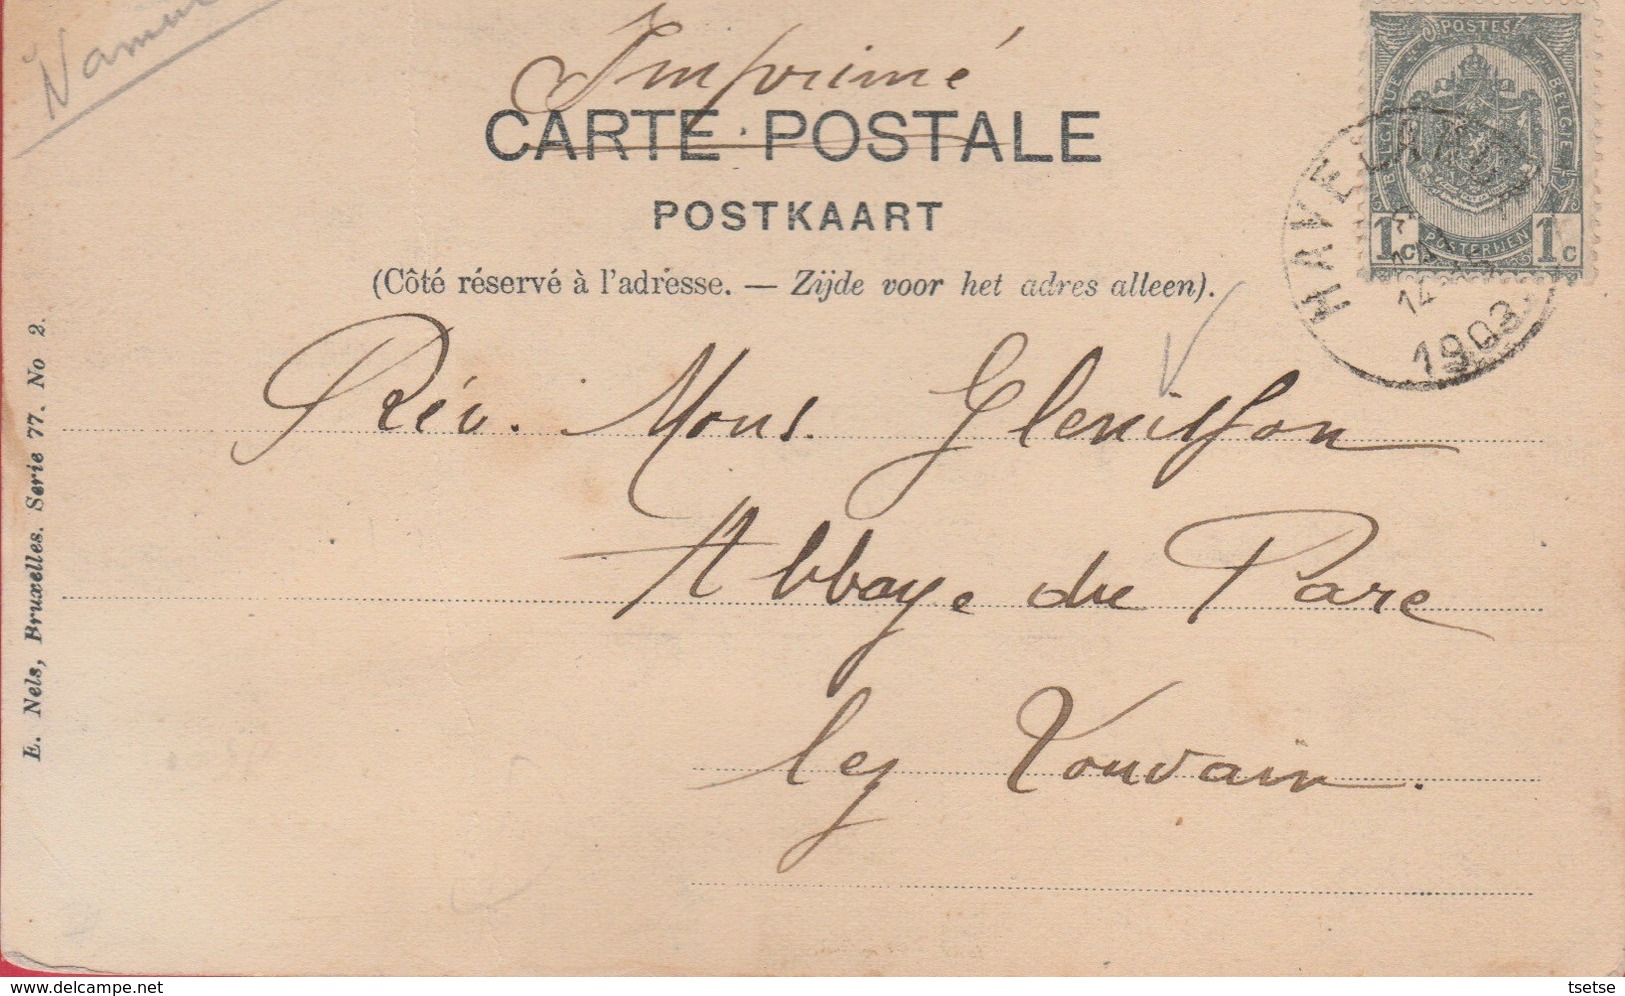 Namur
Imprimé
CARTE POSTALE
POSTKAART
(Côté réservé à l'adresse. — Zijde voor het adres alleen).
POSTES
BELGIQUE BELGIE
1c POSTERIJEN 1c
HAVELANGE
14
1903
Rév. Mons. Glenisson
Abbaye du Parc
lez Louvain.
E. Nels, Bruxelles. Serie 77. No 2.
delcampe.net
tsetse